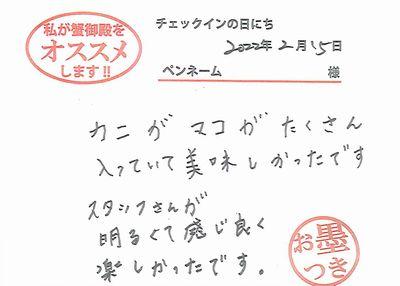 私が蟹御殿を
オススメ
します!!
チェックインの日にち
2022年2月15日
ペンネーム 様
カニがマコがたくさん
入っていて美味しかったです
スタッフさんが
明るくて感じ良く
楽しかったです。
お墨
つき